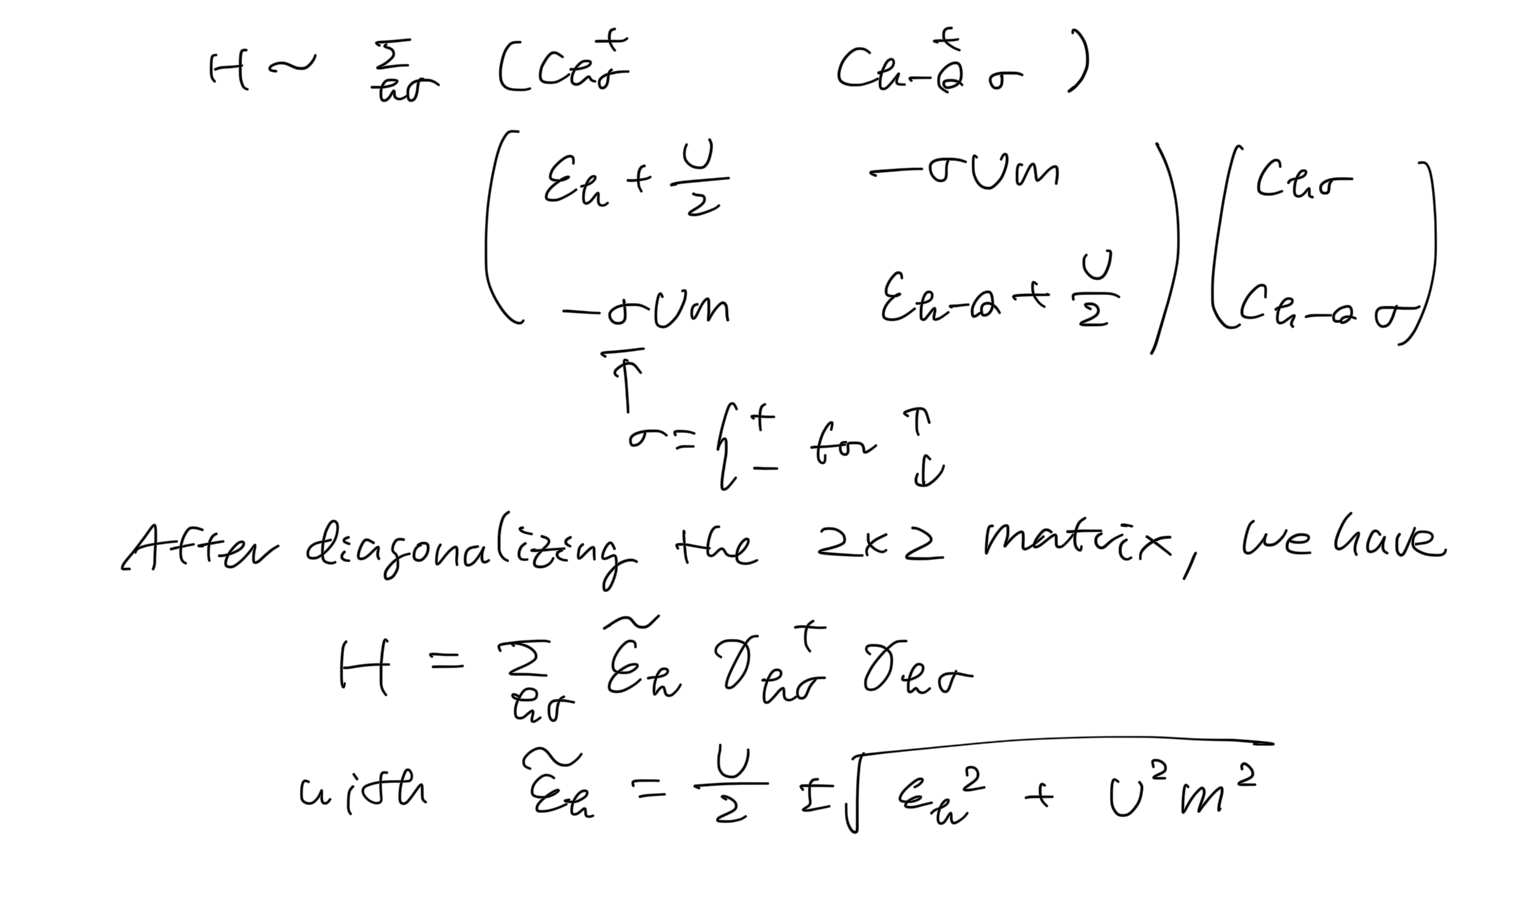 H ~ Σ_{kσ} (C_{kσ}^† C_{k-Q σ}^†)
( ε_k + U/2 -σUm ) ( C_{kσ} )
( -σUm ε_{k-Q} + U/2 ) ( C_{k-Q σ} )
↑
σ = { + for ↑
- ↓
After diagonalizing the 2x2 matrix, we have
H = Σ_{kσ} ε̃_k γ_{kσ}^† γ_{kσ}
with ε̃_k = U/2 ± √(ε_k² + U²m²)